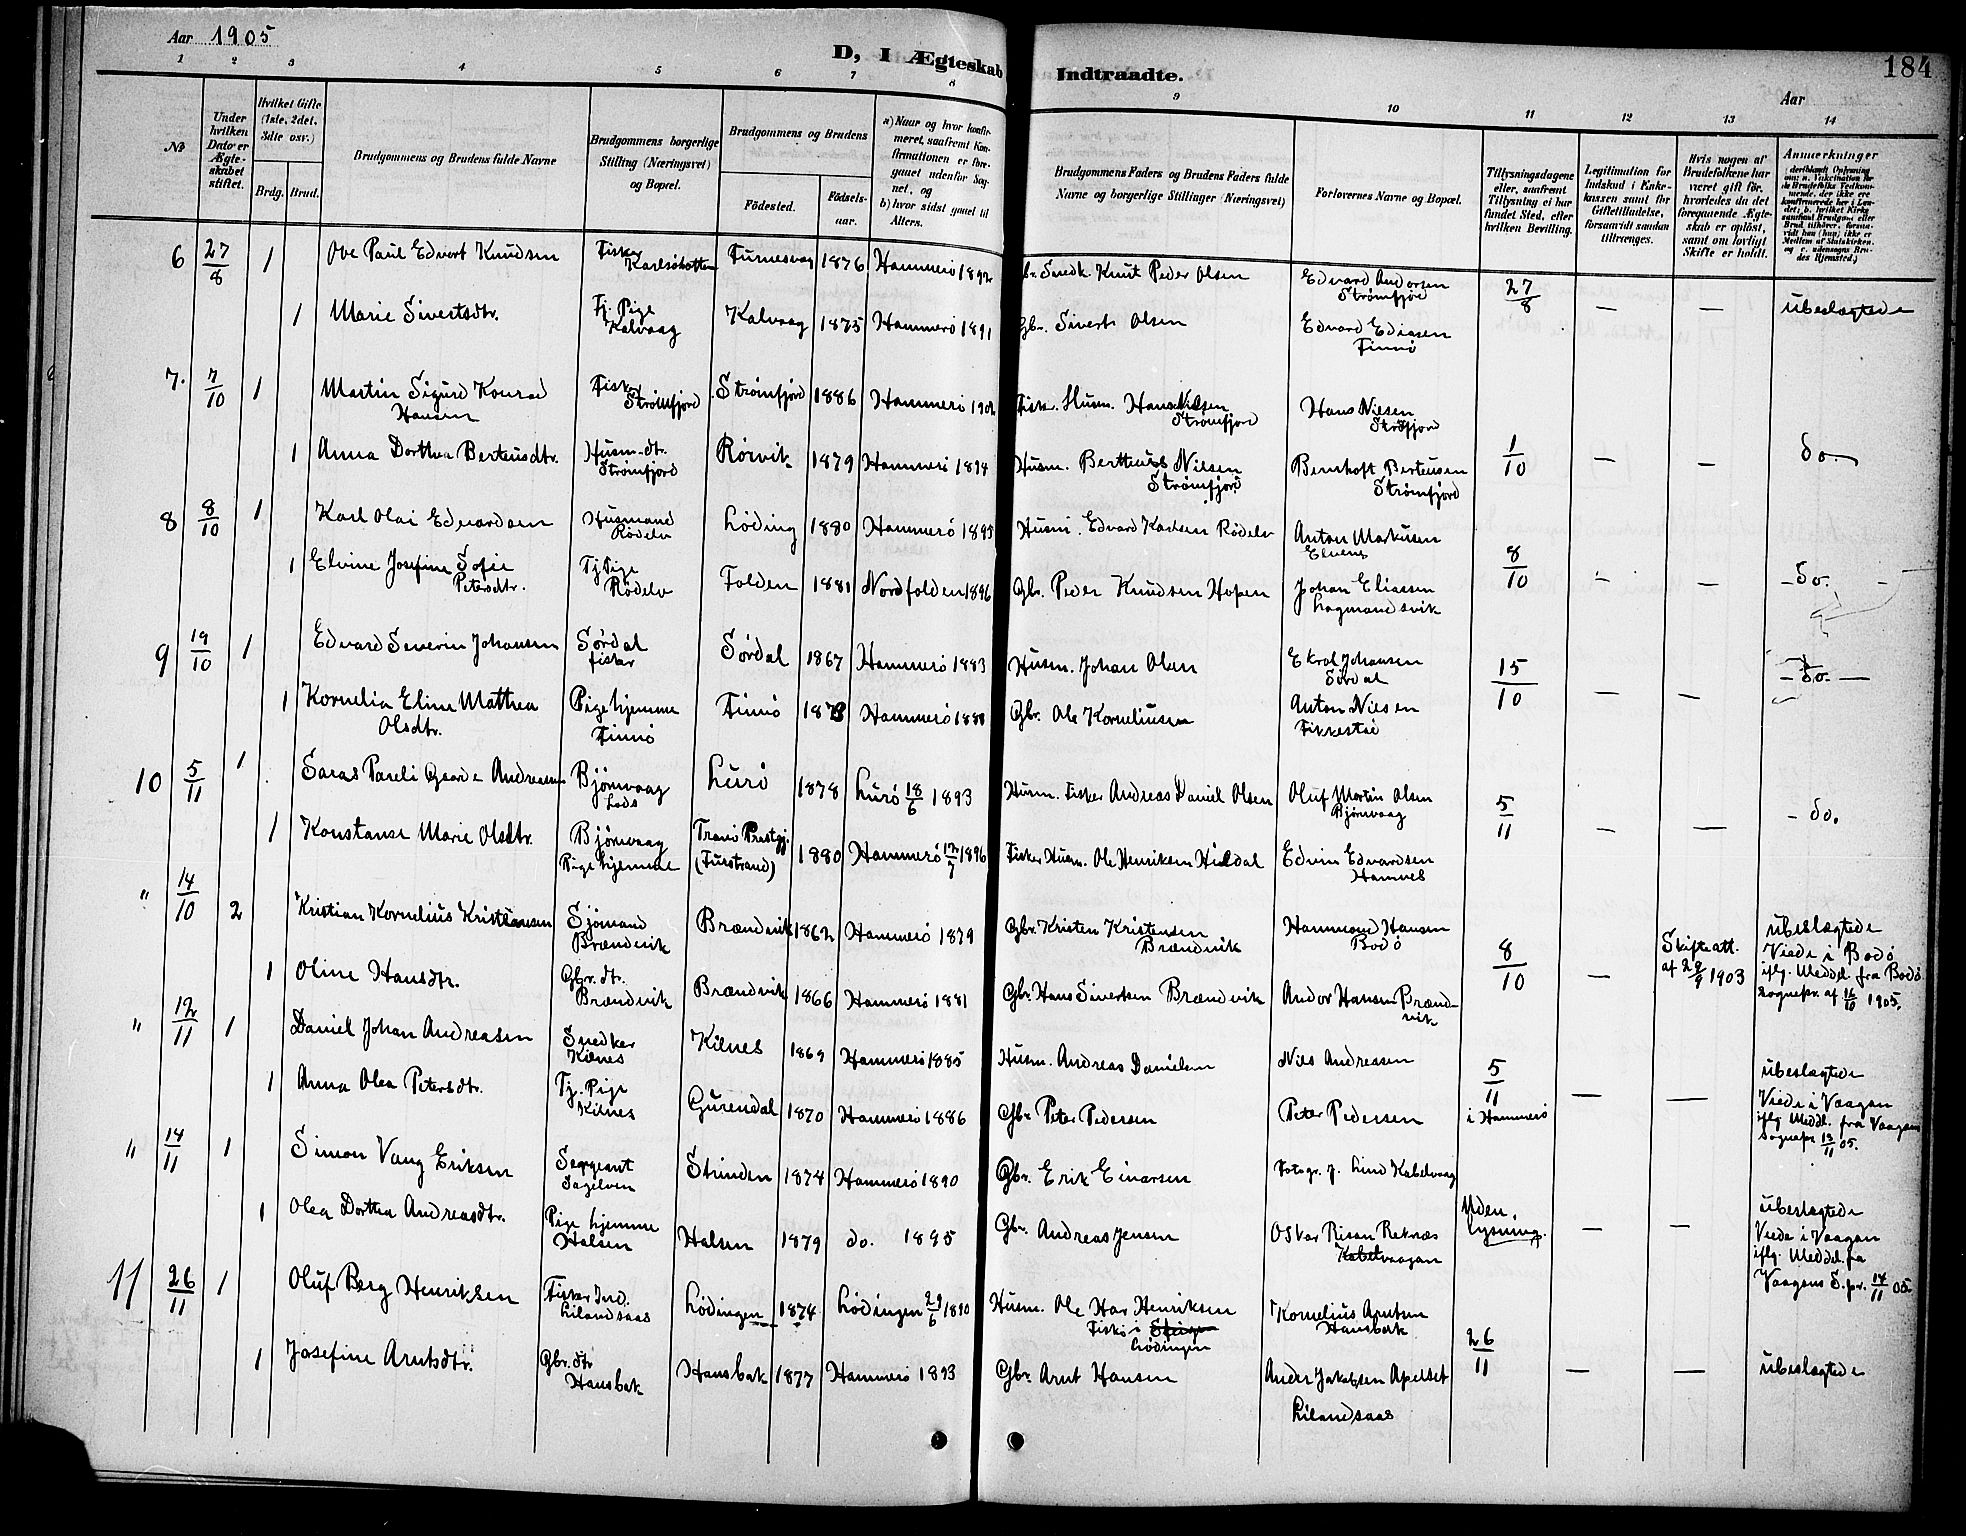 Aar 1905
D, I Ægteskab Indtraadte.
184
Aar
1 2 3 4 5 6 7 8 9 10 11 12 13 14
№
Under hvilken Dato er Ægteskabet stiftet.
Hvilket Gifte (1ste, 2det, 3die osv.)
Brdg. Brud.
Brudgommens og Brudens fulde Navne
Brudgommens borgerlige Stilling (Næringsvei) og Bopæl.
Brudgommens og Brudens
Fødested. Fødselsaar.
a) Naar og hvor konfirmeret, saafremt Konfirmationen er foregaaet udenfor Sognet, og
b) hvor sidst gaaet til Alters.
Brudgommens Faders og Brudens Faders fulde Navne og borgerlige Stillinger (Næringsvei)
Forlovernes Navne og Bopæl.
Tillysningsdagene eller, saafremt Tillysning ei har fundet Sted, efter hvilken Bevilling.
Legitimation for Indskud i Enkekassen samt for Giftetilladelse, forsaavidt saadan tiltrænges.
Hvis nogen af Brudefolkene har været gift før, hvorledes da det foregaaende Ægteskab er opløst, samt om lovligt Skifte er holdt.
Anmerkninger
6 27/8 1 Ove Paul Edvart Knudsen Fisker Karlsøhotten Furnesvag 1876 Hammerø 1892 Gbr. Smedk Knut Peder Olsen Edvard Andorsen Strømfjord 27/8 — — ubeslægtede
1 Marie Sivertsdtr. Tj. Pige Kalvaag Kalvaag 1875 Hammerø 1891 Gbr. Sivert Olsen Edvard Ediasen Finnø
7. 7/10 1 Martin Sigurd Konrad Hansen Fisker Strømfjord Strømfjord 1886 Hammerø 1902 Fisk. Husm. Hans Nilsen Strømfjord Hans Nilsen Strømfjord 1/10 — — do.
1 Anna Dorthea Berteusdtr. Husm-dtr. Strømfjord Rørvik 1879 Hammerø 1894 Husm. Bertheus Nilsen Strømfjord Bernhoft Berteusen Strømfjord
8 8/10 1 Karl Olai Edvardsen Husmand Rødelv Løding 1880 Hammerø 1895 Husm. Edvard Karlsen Rødelv Anton Markusen Elvenes 8/10 — — -do. -
1 Elvine Josefine Sofie Petersdtr. Tj Pige Rødelv Folden 1881 Nordfolden 1896 Gbr. Peder Knudsen Hopen Johan Eliassen Lagmandsvik
9 19/10 1 Edvard Severin Johansen Sørdal fisker Sørdal 1867 Hammerø 1883 Husm. Johan Olsen Ekrol Johansen Sørdal 15/10 — — -do.-
1 Kornelia Eline Mathea Olsdtr. Pige hjemme Finnø Finnø 1873 Hammerø 1888 Gbr. Ole Korneliussen Anton Nilsen Fikkestad
10 5/11 1 Saras Pareli Andreassen Bjørnvaag Lods Lurø 1878 Lurø 18/6 1893 Husm. Fisker Andreas Daniel Olsen Oluf Martin Olsen Bjørnvaag 5/11 — — - do.
1 Konstanse Marie Olsdtr. Bjørnvaag Pige hjemme Tranø Prestgj. (Furstrand) 1880 Hammerø 12/7 1896 Fisker Husm. Ole Henriksen Hildal Edvin Edvardsen Hamnes
" 14/10 2 Kristian Kornelius Kristiansen Sjømand Brændvik Brændvik 1862 Hammerø 1879 Gbr. Kristen Kristensen Brændvik Hammond Hansen Bodø 8/10 — Skifteatt. af 29/9 1903 ubeslægtede Viede i Bodø iflg. Meddel. fra Bodø sognepr. af 16/10 1905.
1 Oline Hansdtr. Gbr. dtr. Brændvik Brændvik 1866 Hammerø 1881 Gbr. Hans Sivertsen Brændvik Andor Hansen Brændvik
" 12/11 1 Daniel Johan Andreasen Snedker Kilnes Kilnes 1869 Hammerø 1885 Husm. Andreas Danielsen Nils Andreasen 5/11 i Hammerø — — ubeslægtede Viede i Vaagan iflg Meddl. fra Vaagans Sognepr 13/11 05.
1 Anna Olea Petersdtr. Tj. Pige Kilnes Gurendal 1870 Hammerø 1886 Gbr. Peter Pedersen Peter Pedersen
" 14/11 1 Simon Vang Eriksen Sergeant Sagelven Strinden 1874 Hammerø 1890 Gbr. Erik Einarsen Fotogr. J. Lind Kabelvaag Uden lysning. — — ubeslægtede Viede i Vaagan iflg. Meddel. fra Vaagens S.pr. 14/11 05.
1 Olea Dorthea Andreasdtr. Pige hjemme Halsen Halsen 1879 do. 1895 Gbr. Andreas Jensen Oskar Risan Reknæs Kabelvaagan
11 26/11 1 Oluf Berg Henriksen Fisker Ind. Lilandsaas Lødingen 1874 Lødingen 29/6 1890 Husm. Ole Har Henriksen Fisker i Steige Lødingen Kornelius Arntsen Hansbak 26/11 — — ubeslægtede
1 Josefine Arntsdtr. Gbr. dtr Hansbak Hansbak 1877 Hammerø 1893 Gbr. Arnt Hansen Ander Jakobsen Apelset Lilandsaas